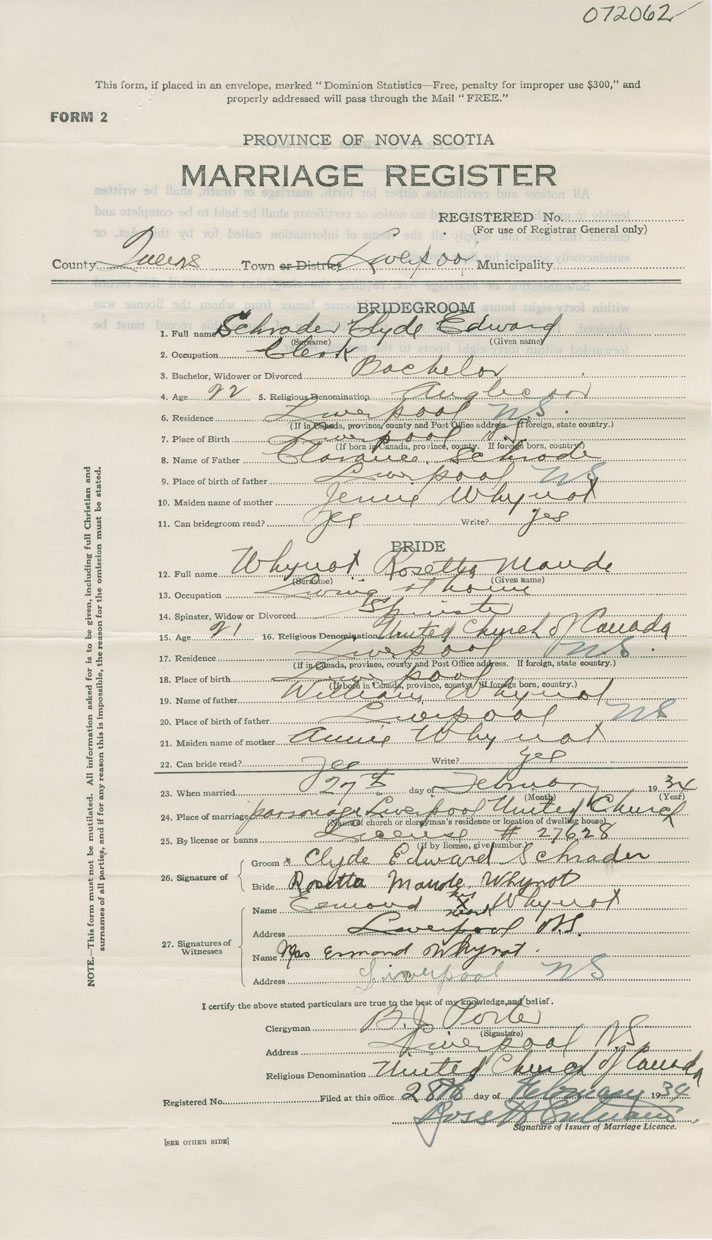 072062
This form, if placed in an envelope, marked "Dominion Statistics—Free, penalty for improper use $300," and
properly addressed will pass through the Mail "FREE."
FORM 2
PROVINCE OF NOVA SCOTIA
MARRIAGE REGISTER
REGISTERED No.
(For use of Registrar General only)
County Queens Town or District Liverpool Municipality
BRIDEGROOM
1. Full name Schrader Clyde Edward
(Surname) (Given name)
2. Occupation Clerk
3. Bachelor, Widower or Divorced Bachelor
4. Age 22 5. Religious Denomination Anglican
6. Residence Liverpool NS.
(If in Canada, province, county and Post Office address. If foreign, state country.)
7. Place of Birth Liverpool NS
(If born in Canada, province, county. If foreign born, country.)
8. Name of Father Clarence Schrader
9. Place of birth of father Liverpool NS
10. Maiden name of mother Jennie Whynot
11. Can bridegroom read? Yes Write? Yes
BRIDE
12. Full name Whynot Rosetta Maude
(Surname) (Given name)
13. Occupation Living at home
14. Spinster, Widow or Divorced Spinster
15. Age 21 16. Religious Denomination United Church of Canada
17. Residence Liverpool NS.
(If in Canada, province, county and Post Office address. If foreign, state country.)
18. Place of birth Liverpool
(If born in Canada, province, county. If foreign born, country.)
19. Name of father William Whynot
20. Place of birth of father Liverpool NS
21. Maiden name of mother Annie Whynot
22. Can bride read? Yes Write? Yes
23. When married 27th day of February 1934
(Month) (Year)
24. Place of marriage parsonage Liverpool United Church
(Name of church or clergyman's residence or location of dwelling house)
25. By license or banns License # 27628
(If by license, give number)
26. Signature of
Groom Clyde Edward Schrader
Bride Rosetta Maude Whynot
27. Signatures of Witnesses
Name Esmond his X mark Whynot
Address Liverpool N.S.
Name Mrs Esmond Whynot.
Address Liverpool NS
I certify the above stated particulars are true to the best of my knowledge and belief.
Clergyman B. J. Porter
(Signature)
Address Liverpool NS
Religious Denomination United Church of Canada
Registered No. Filed at this office 28th day of February 1934
Signature of Issuer of Marriage Licence.
[SEE OTHER SIDE]
NOTE.—This form must not be mutilated. All information asked for is to be given, including full Christian and
surnames of all parties, and if for any reason this is impossible, the reason for the omission must be stated.